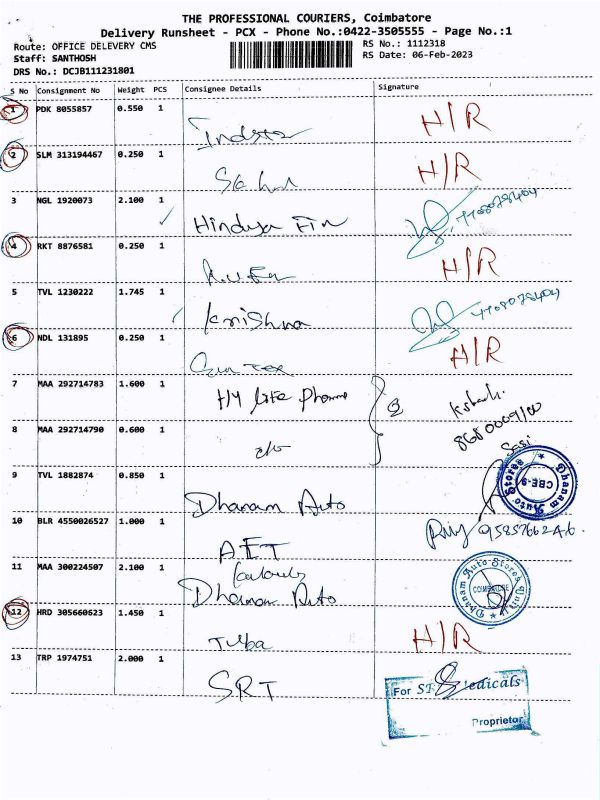 THE PROFESSIONAL COURIERS, Coimbatore
Delivery Runsheet - PCX - Phone No.:0422-3505555 - Page No.:1
Route: OFFICE DELEVERY CMS
RS No.: 1112318
Staff: SANTHOSH
RS Date: 06-Feb-2023
DRS No.: DCJB111231801
S No Consignment No Weight PCS Consignee Details Signature
1 PDK 8055857 0.550 1 H/R
2 SLM 313194467 0.250 1 H/R
3 NGL 1920073 2.100 1 Hinduja Fin
4 RKT 8876581 0.250 1 H/R
5 TVL 1230222 1.745 1 Krishna
6 NDL 131895 0.250 1 H/R
7 MAA 292714783 1.600 1 Life Pharma
8 MAA 292714790 0.600 1
9 TVL 1882874 0.850 1 Dhanam Auto
Sasi
Dhanam Auto Stores CBE-9
10 BLR 4550026527 1.000 1 AET
11 MAA 300224507 2.100 1 Dhanam Auto
Dhanam Auto Stores COIMBATORE
12 HRD 305660623 1.450 1 Tulba H/R
13 TRP 1974751 2.000 1 SRT
For Medicals
Proprietor